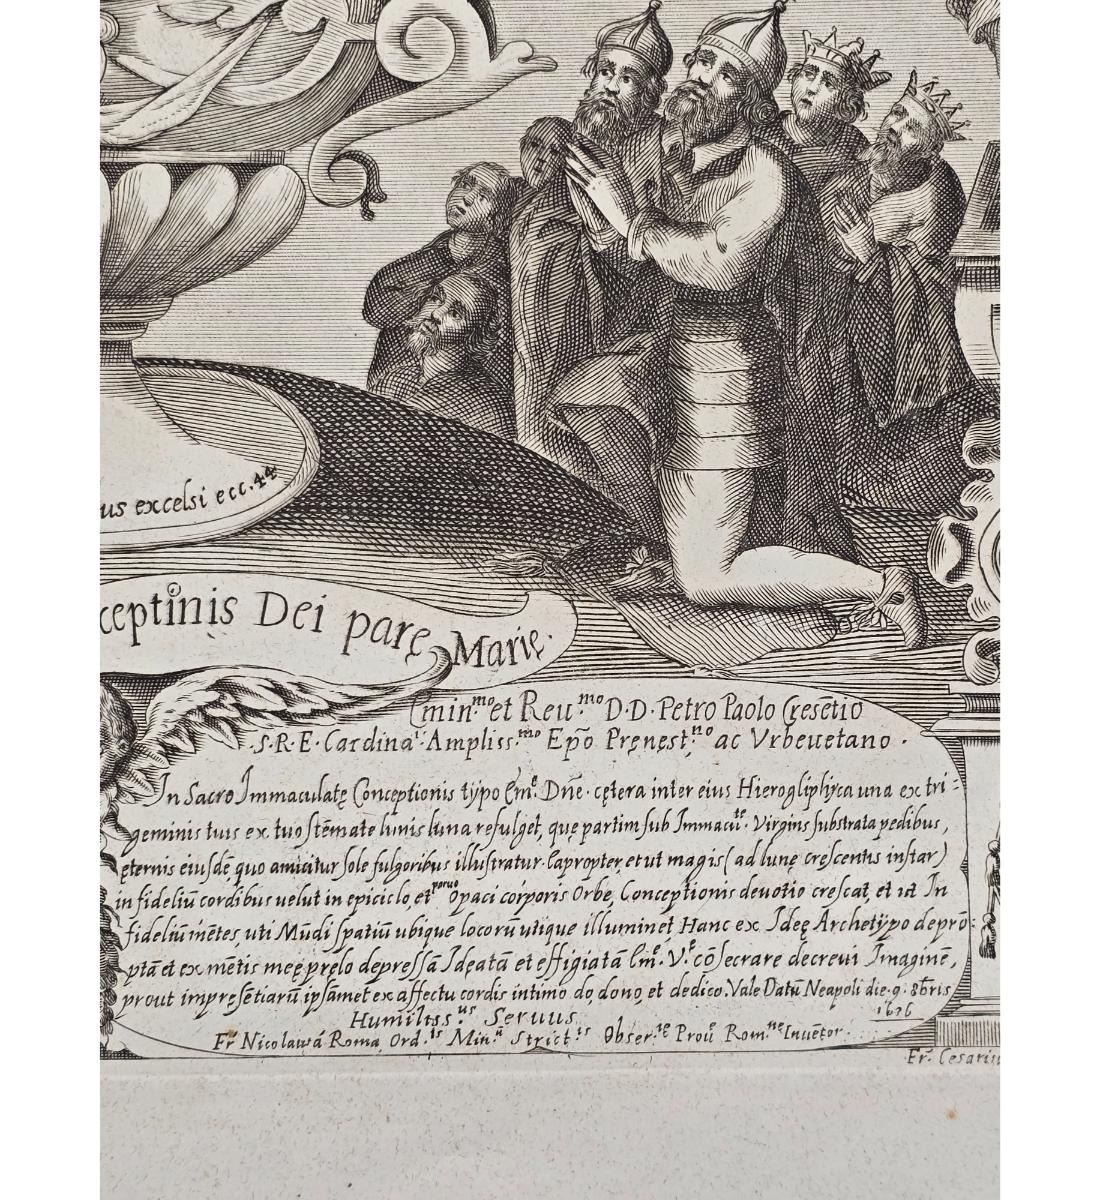 us excelsi ecc. 44
ceptinis Dei parę Marię.
Emin.mo et Reu.mo D. D. Petro Paolo Cresētio
.S. R. E. Cardinal. Ampliss.mo Epõ Pręnest.no ac Vrbeuetano .
In Sacro Immaculatę Conceptionis typo Em.e Dñe. cętera inter eius Hierogliphyca una ex tri=
geminis tuis ex tuo stēmate lunis luna refulget, quę partim sub Immacu.te Virginis substrata pedibus,
ęternis eiusdē quo amicitur sole fulgoribus illustratur. Eapropter, et ut magis (ad lunę crescentis instar)
in fideliū cordibus uelut in epiciclo, et paruo opaci corporis Orbe, Conceptionis deuotio crescat, et ut In
fideliū mētes, uti Mūdi spatiū ubique locorū utique illuminet Hanc ex Ideę Archetypo deprō:
ptā et ex mētis meę pręlo depressā Idęatā et effigiatā Em.e V.e cōsecrare decreui Imaginē,
prout impresētiarū ipsamet ex affectu cordis intimo do, dono, et dedico. Vale Datū Neapoli die. 9. 8bris
1626
Humiliss.us Seruus
Fr Nicolaus á Roma Ord.is Min.u Strict.is Obser.te Prou.e Rom.ne Inuētor.
Fr. Cesariu